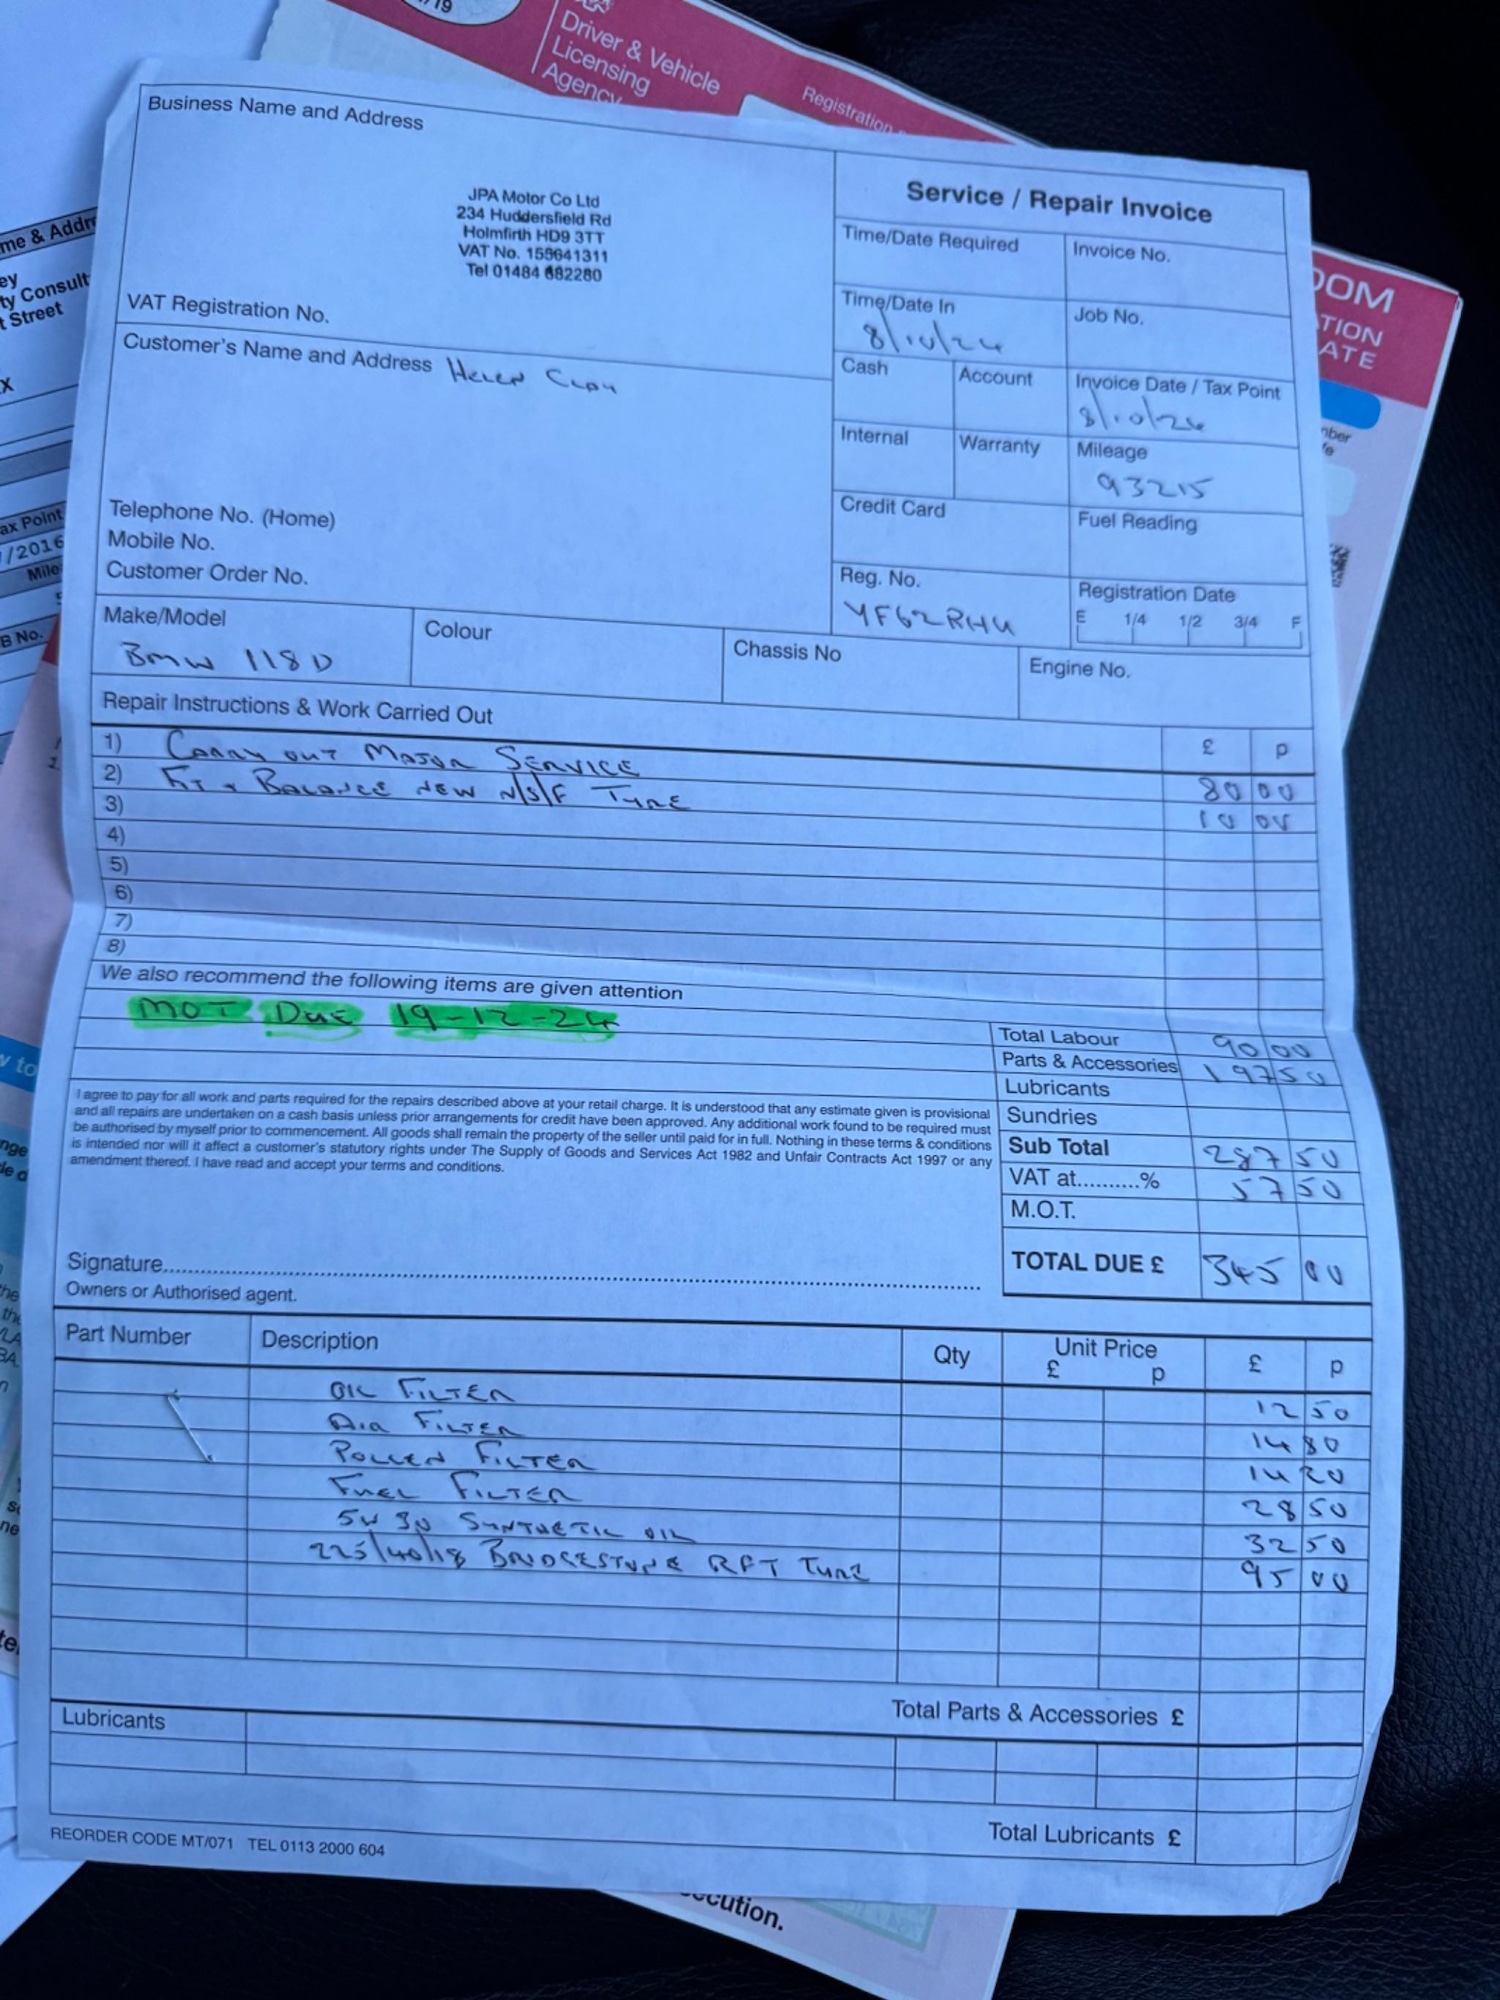 /19
Driver & Vehicle
Licensing
Agency
Registration
Business Name and Address
JPA Motor Co Ltd
234 Huddersfield Rd
Holmfirth HD9 3TT
VAT No. 155641311
Tel 01484 682280
VAT Registration No.
Service / Repair Invoice
Time/Date Required
Invoice No.
Time/Date In
8/10/24
Job No.
Customer's Name and Address Helen Clay
Cash
Account
Invoice Date / Tax Point
8/10/24
Internal
Warranty
Mileage
93215
Credit Card
Fuel Reading
Telephone No. (Home)
Mobile No.
Customer Order No.
Reg. No.
YF62RHU
Registration Date
E 1/4 1/2 3/4 F
Make/Model
BMW 118D
Colour
Chassis No
Engine No.
Repair Instructions & Work Carried Out
£ p
1) CARRY OUT MAJOR SERVICE 80 00
2) FIT & BALANCE NEW N/S/F TYRE 10 00
3)
4)
5)
6)
7)
8)
We also recommend the following items are given attention
MOT DUE 19-12-24
Total Labour 90 00
Parts & Accessories 197 50
Lubricants
Sundries
Sub Total 287 50
VAT at..........% 57 50
M.O.T.
TOTAL DUE £ 345 00
I agree to pay for all work and parts required for the repairs described above at your retail charge. It is understood that any estimate given is provisional
and all repairs are undertaken on a cash basis unless prior arrangements for credit have been approved. Any additional work found to be required must
be authorised by myself prior to commencement. All goods shall remain the property of the seller until paid for in full. Nothing in these terms & conditions
is intended nor will it affect a customer's statutory rights under The Supply of Goods and Services Act 1982 and Unfair Contracts Act 1997 or any
amendment thereof. I have read and accept your terms and conditions.
Signature
Owners or Authorised agent.
Part Number
Description
Qty
Unit Price
£ p
£ p
OIL FILTER 12 50
AIR FILTER 14 80
POLLEN FILTER 14 20
FUEL FILTER 28 50
5W30 SYNTHETIC OIL 32 50
225/40/18 BRIDGESTONE RFT TYRE 95 00
Total Parts & Accessories £
Lubricants
Total Lubricants £
REORDER CODE MT/071 TEL 0113 2000 604
me & Addr
ey
ty Consult
t Street
X
ax Point
/2016
Mile
B No.
DOM
TION
ATE
cution.